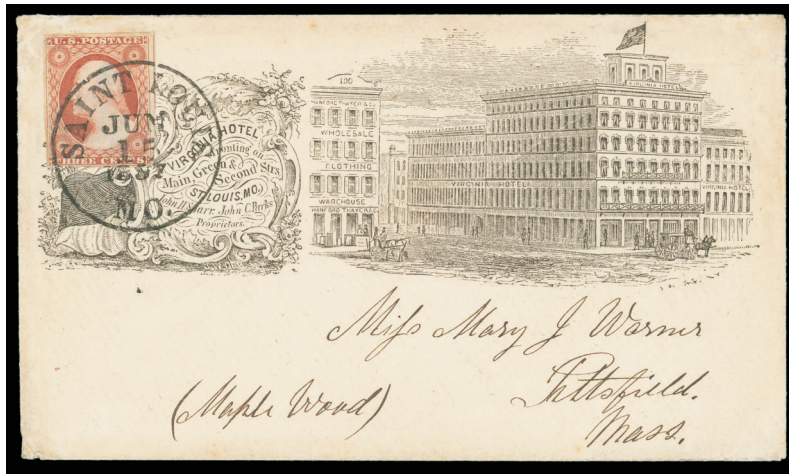 U.S. POSTAGE
THREE CENTS
SAINT LOUIS
JUN
15
1857
MO.
VIRGINIA HOTEL
Fronting on
Main, Green & Second Strs
ST LOUIS, MO.
John H. Sparr, John C. Parks
Proprietors.
100
HANFORD THAYER & CO.
WHOLESALE
CLOTHING
WAREHOUSE
HANFORD THAYER & CO.
VIRGINIA HOTEL
VIRGINIA HOTEL
VIRGINIA HOTEL
Miss Mary J Warner
Pittsfield.
(Maple Wood)
Mass.